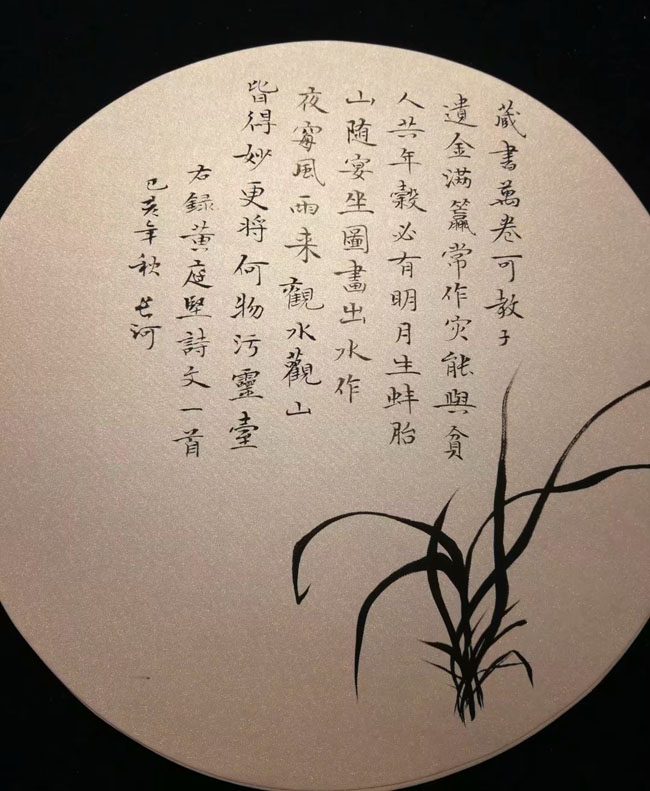 藏書萬卷可教子
遺金滿籯常作灾能與貧
人共年穀必有明月生蚌胎
山随宴坐圖畫出水作
夜窗風雨来觀水觀山
皆得妙更將何物污靈臺
右録黄庭堅詩文一首
己亥年秋 长河